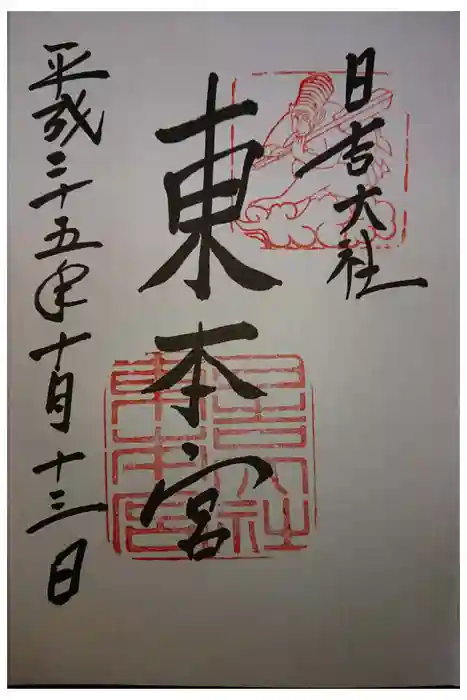 日吉大社
東本宮
平成二十五年十月十三日
日吉大社
東本宮